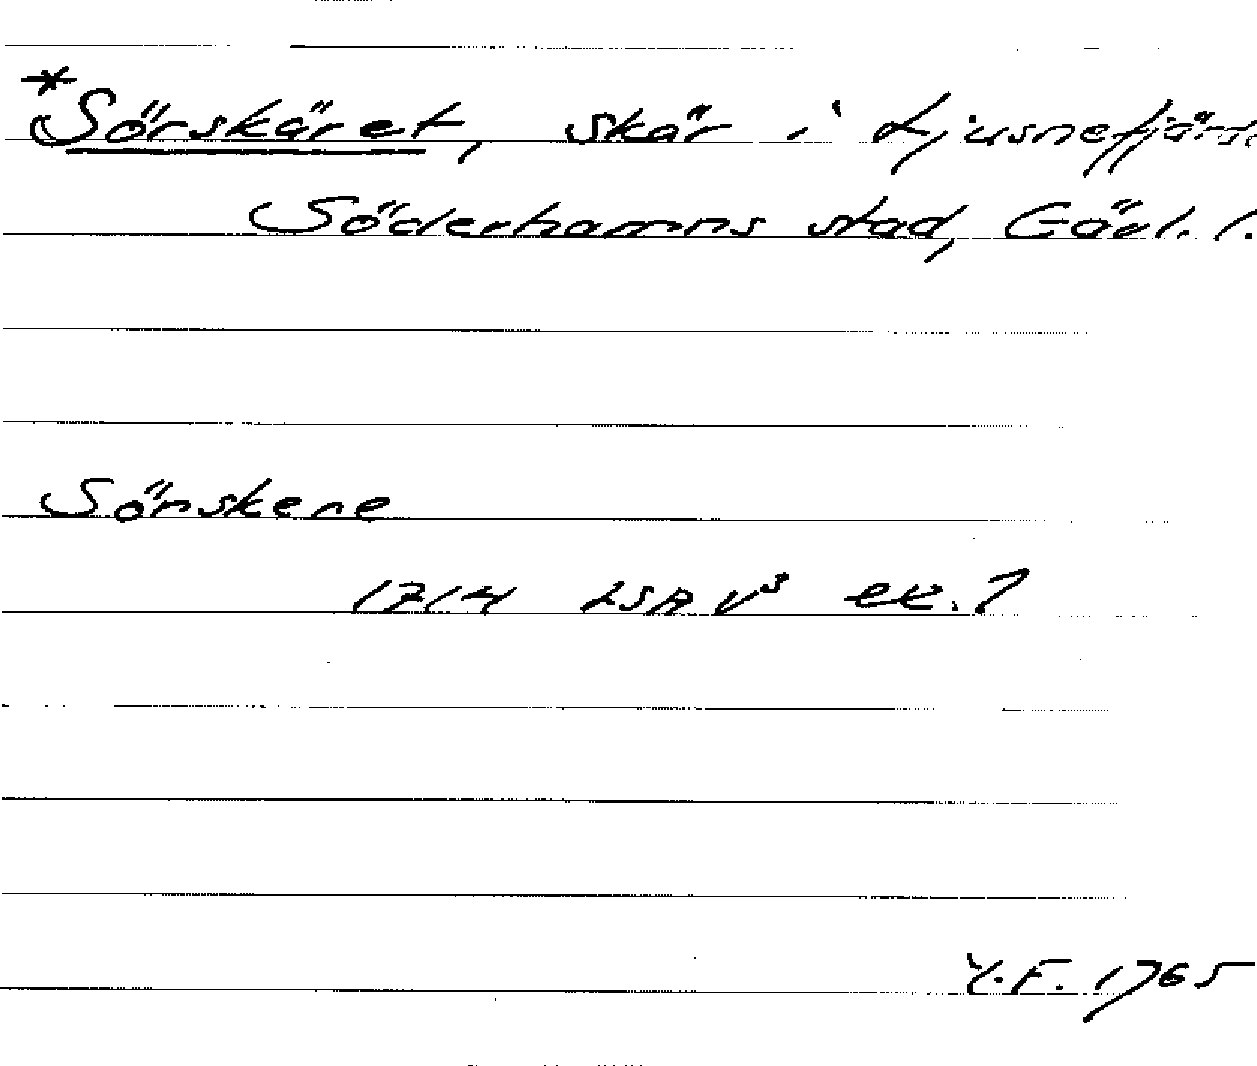 *Sörskäret, skär i Ljusnefjärd
Söderhamns stad, Gävl. l.
Sörskene
1714 LSA V3 ek.?
Y.F. 1965